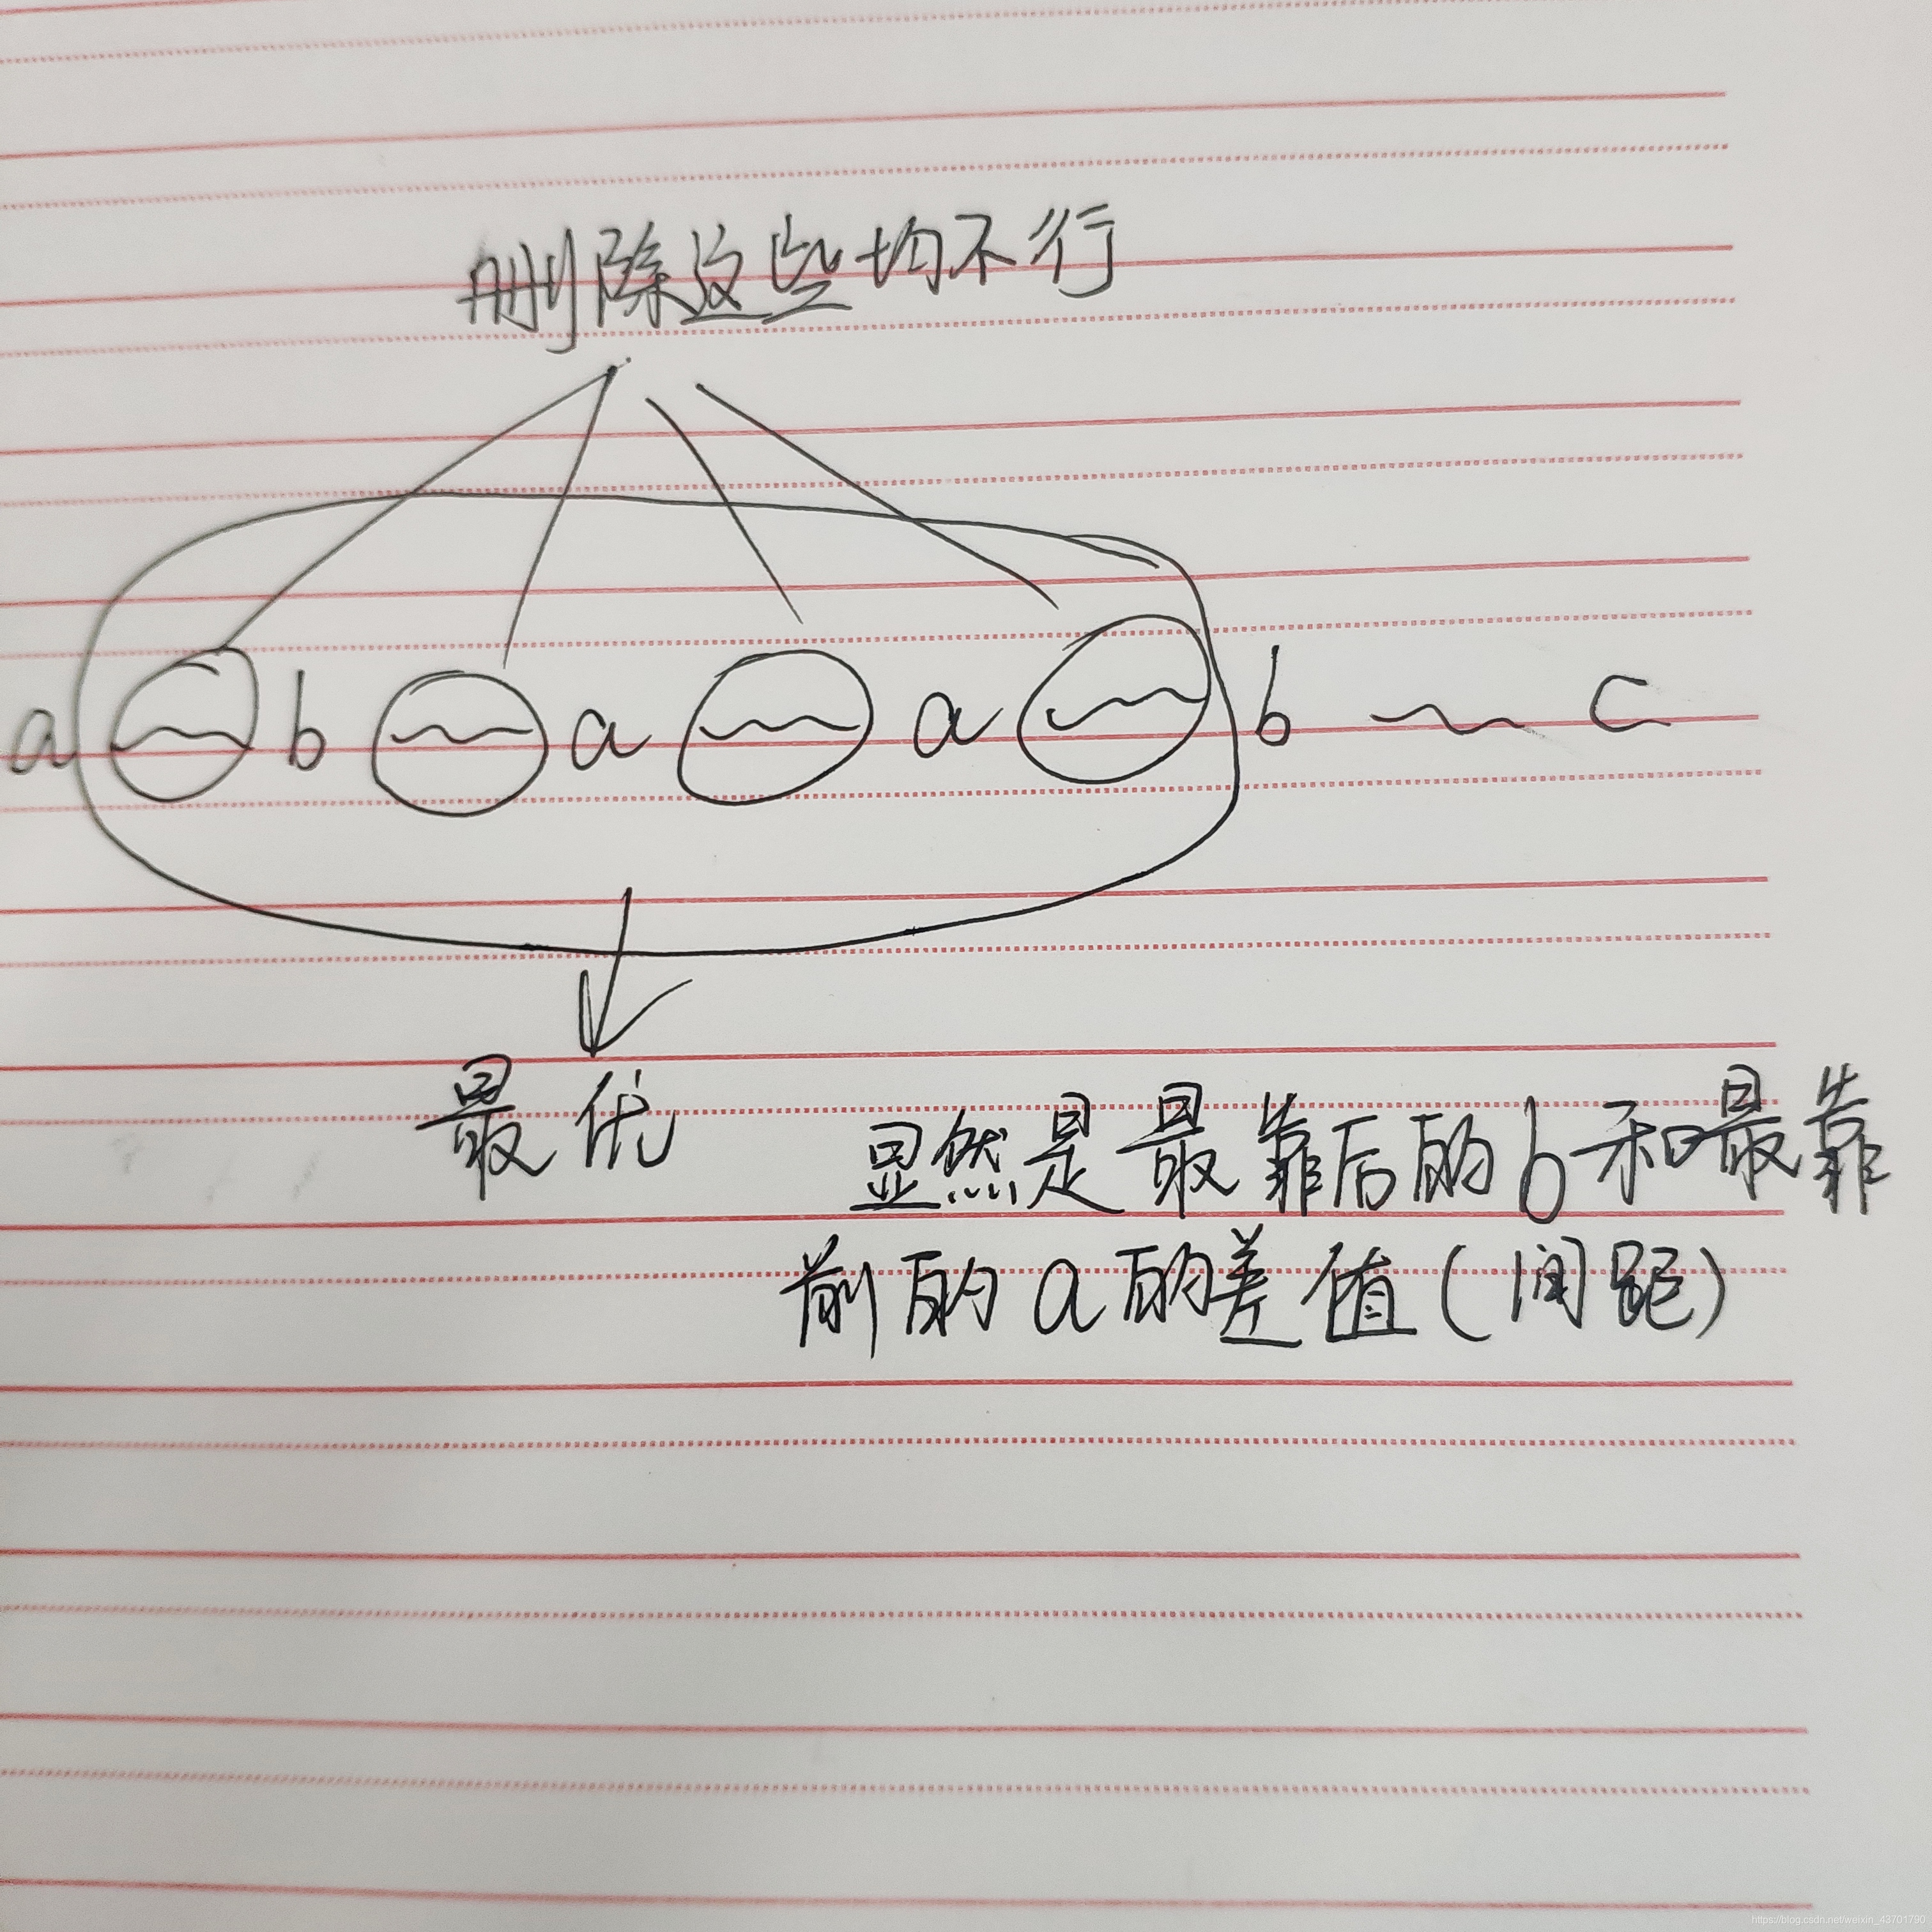 删除这些均不行
a ~ b ~ a ~ a ~ b ~ c
最优
显然是最靠后的b和最靠
前的a的差值(间距)
https://blog.csdn.net/weixin_43701790